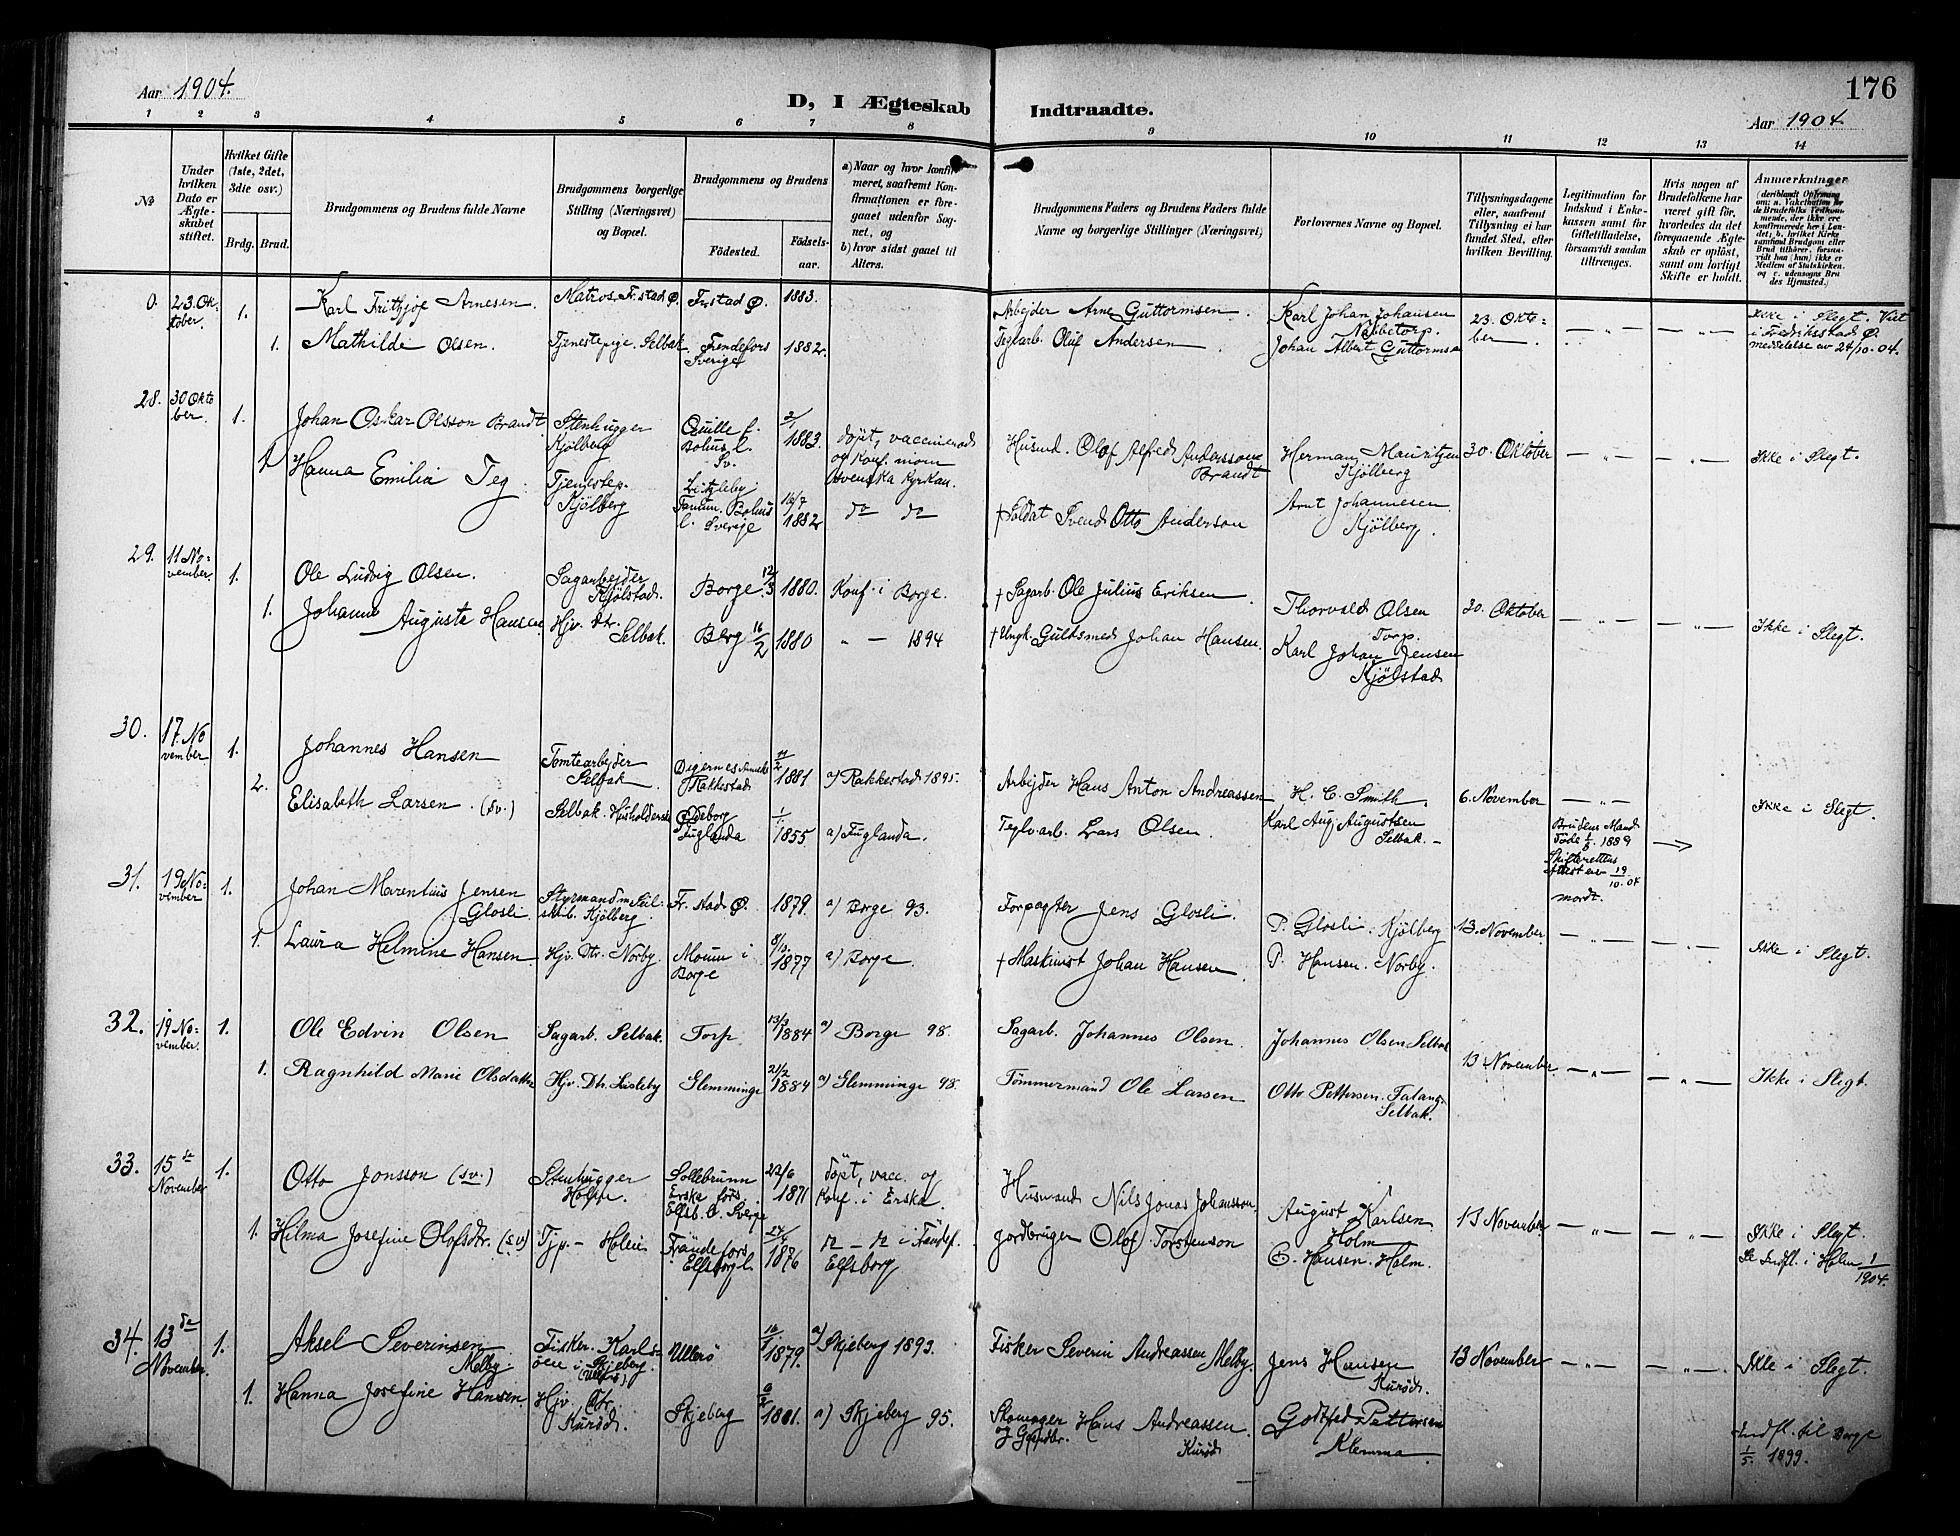 176
Aar 1904.
D, I Ægteskab Indtraadte.
Aar 1904.
1 2 3 4 5 6 7 8 9 10 11 12 13 14
No
Under hvilken Dato er Ægteskabet stiftet.
Hvilket Gifte (1ste, 2det, 3die osv.)
Brdg. Brud.
Brudgommens og Brudens fulde Navne
Brudgommens borgerlige Stilling (Næringsvei) og Bopæl.
Brudgommens og Brudens
Fødested.
Fødselsaar.
a) Naar og hvor konfirmeret, saafremt Konfirmationen er foregaaet udenfor Sognet, og
b) hvor sidst gaaet til Alters.
Brudgommens Faders og Brudens Faders fulde Navne og borgerlige Stillinger (Næringsvei)
Forlovernes Navne og Bopæl.
Tillysningsdagene eller, saafremt Tillysning ei har fundet Sted, efter hvilken Bevilling.
Legitimation for Indskud i Enkekassen samt for Giftetilladelse, forsaavidt saadan tiltrænges.
Hvis nogen af Brudefolkene har været gift før, hvorledes da det foregaaende Ægteskab er opløst, samt om lovligt Skifte er holdt.
Anmærkninger
0. 23. Oktober. 1. Karl Frithjof Arnesen. Matros. Fr.stad Ø. Frstad Ø. 1883. Arbejder Arne Guttormsen. Karl Johan Johansen Nabbetorp. 23. Oktober — „ — — „ — Ikke i Slegt. Viet i Fredrikstad Ø. meddelelse av 24/10. 04.
1. Mathilde Olsen. Tjenestepige. Selbak. Frendefors Sverige 1882. Teglarb. Oluf Andersen Johan Albert Guttormsen
28. 30 Oktober. 1. Johan Oskar Olsson Brandt Stenhugger Kjølberg Quille f. Bohus l. Sv. 2/1 1883. døpt, vaccinered og Konf. inom svenska Kyrkan. Husmd. Olof Alfred Andersson Brandt Herman Mauritzen Kjølberg 30. Oktober — „ — — „ — Ikke i Slegt.
1. Hanna Emilia Teg. Tjenestep. Kjølberg Tanum. Bohus l. Sverige 16/7 1882 do do † Soldat Svend Otto Anderson Arnt Johannesen Kjølberg.
29. 11 November. 1. Ole Ludvig Olsen. Sagarbejder Kjølstad. Borge. 12/3 1880. Konf. i Borge. † Sagarb. Ole Julius Eriksen. Thorvald Olsen Torp. 30. Oktober — „ — — „ — Ikke i Slegt.
1. Johanne Auguste Hansen Hjv. Dtr. Selbak. Berg 16/2 1880 „ — 1894 † Ungk. Guldsmed Johan Hansen. Karl Johan Jensen Kjølstad
30. 17. November 1. Johannes Hansen Tomtearbejder Selbak. Rakkestad 11/2 1881 a) Rakkestad 1895. Arbejder Hans Anton Andreassen H. C. Smith. 6. November — „ — Ikke i Slegt.
2. Elisabeth Larsen. (sv.) Selbak. Husholderske Ødeborg Fuglanda 1/1 1855 a) Fuglanda. Teglv.arb. Lars Olsen. Karl Aug. Augustsen Selbak. — Brudens Mand døde 1/8 1889 Skifterettens Attest av 19/10. 04 mordt.
31. 19 November 1. Johan Marentius Jensen Glosli. Styrmand m Seilskib. Kjølberg. Fr. stad Ø. 1879. a) Borge 93. Forpagter Jens Glosli. P. Glosli. Kjølberg 13. November. — „ — — „ — Ikke i Slegt.
1. Laura Helmine Hansen. Hjv. Dtr. Norby. Moum i Borge 8/12 1877 a) Borge. † Maskinist Johan Hansen. P. Hansen. Norby.
32. 19 November. 1. Ole Edvin Olsen Sagarb. Selbak. Torp 13/3 1884 a) Borge 98. Sagarb. Johannes Olsen. Johannes Olsen Selbak 13 November. — „ — — „ — Ikke i Slegt.
1. Ragnhild Marie Olsdatter Hjv. Dtr. Lisleby Glemminge 21/2 1884 a) Glemminge 98. Tømmermand Ole Larsen Otto Pettersen. Falang. Selbak.
33. 15 de November 1. Otto Jonsson (sv.) Stenhugger Holm. Sollebrunn Erska fors. Elfsb. l. Sverge 22/6 1871 døpt, vacc. og Konf. i Erska. Husmand Nils Jonas Johansson. August Karlsen Holm 13 November — „ — — „ — Ikke i Slegt.
1. Hilma Josefine Olofsdtr. (sv) Tjp. — Holm Frändefors Elfsborg l. 27/4 1876 n — n i Frändef. Elfsborg Jordbruger Olof Torstenson E. Hansen. Holm. Se Indfl. i Holm 1/1904.
34. 13 de November. 1. Aksel Severinsen Melby. Fisker. Karlsøen i Skjeberg. (Ullerø) Ullerø 16/1 1879. a) Skjeberg 1893. Fisker Severin Andreassen Melby. Jens Hansen Kurød. 13 November — „ — — „ — Ikke i Slegt.
1. Hanna Josefine Hansen. Hjv. Dtr. Kurød. Skjeberg 9/2 1881. a) Skjeberg 95. Skomager Hans Andreassen. Kurød Gottfed Pettersen Klemma Indfl. til Borge 1/5. 1899.